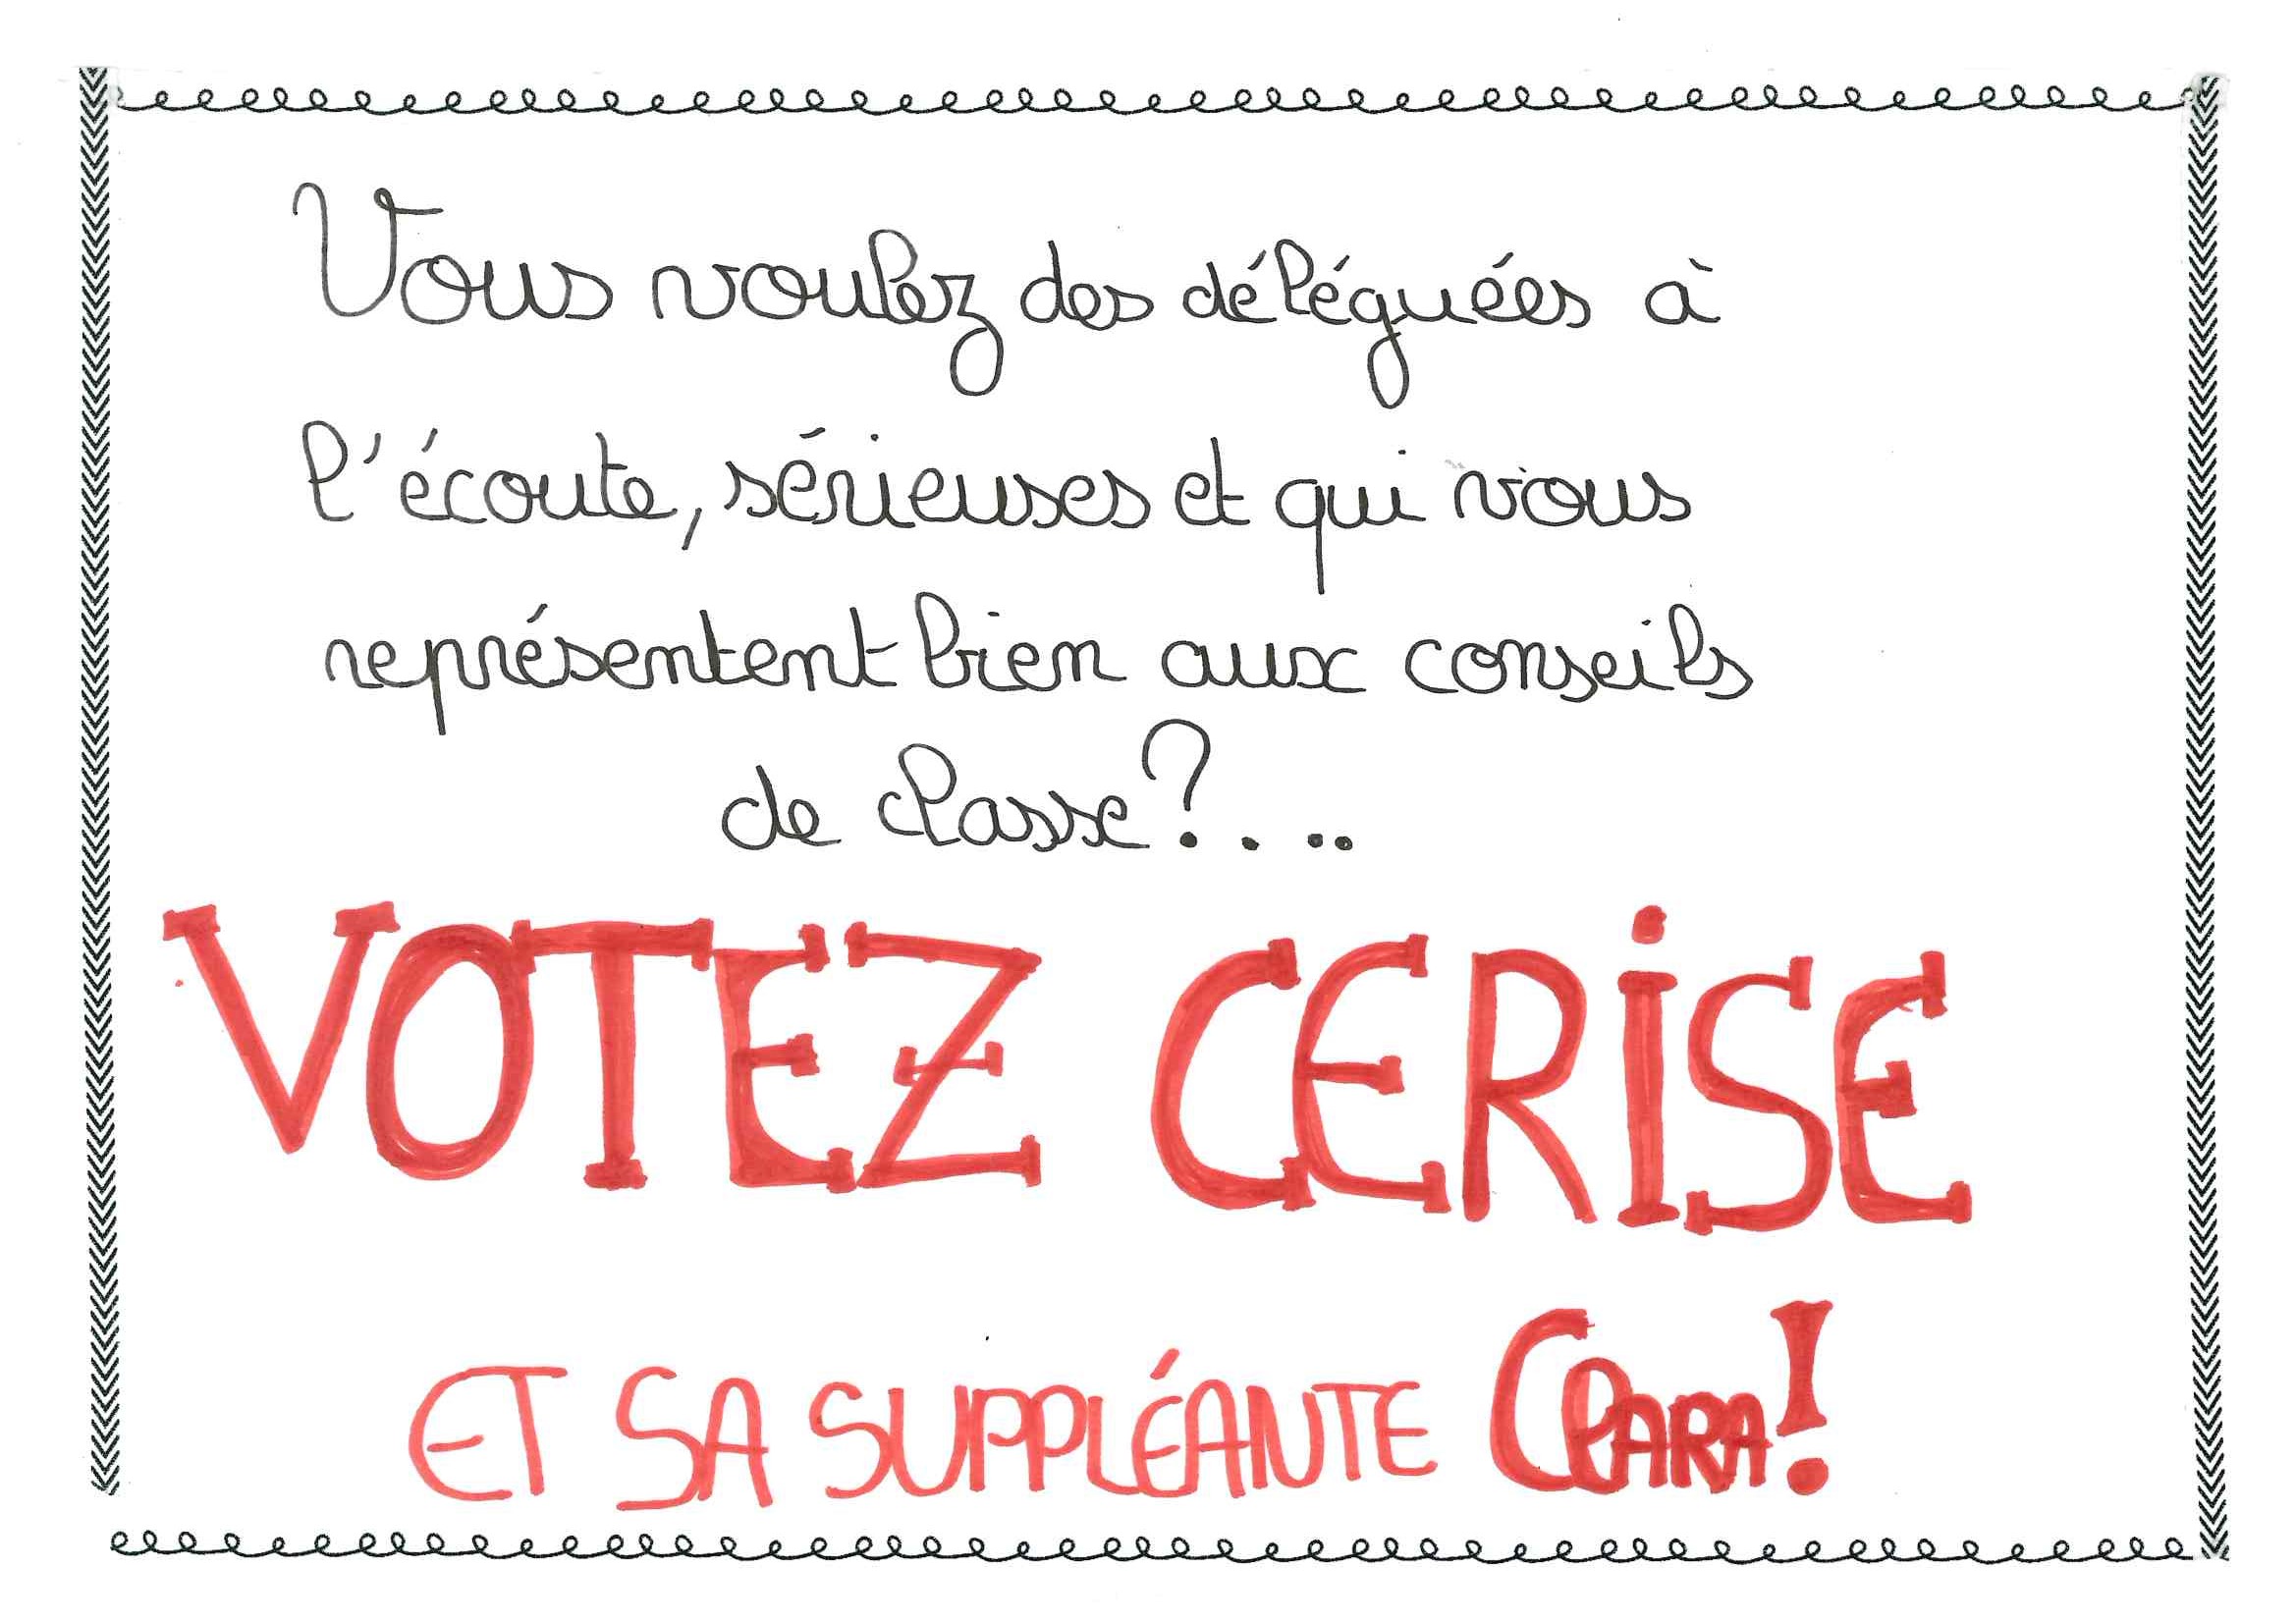 Vous voulez des déléguées à
l'écoute, sérieuses et qui vous
représentent bien aux conseils
de classe?....
VOTEZ CERiSE
ET SA SUPPLÉANTE CLARA!